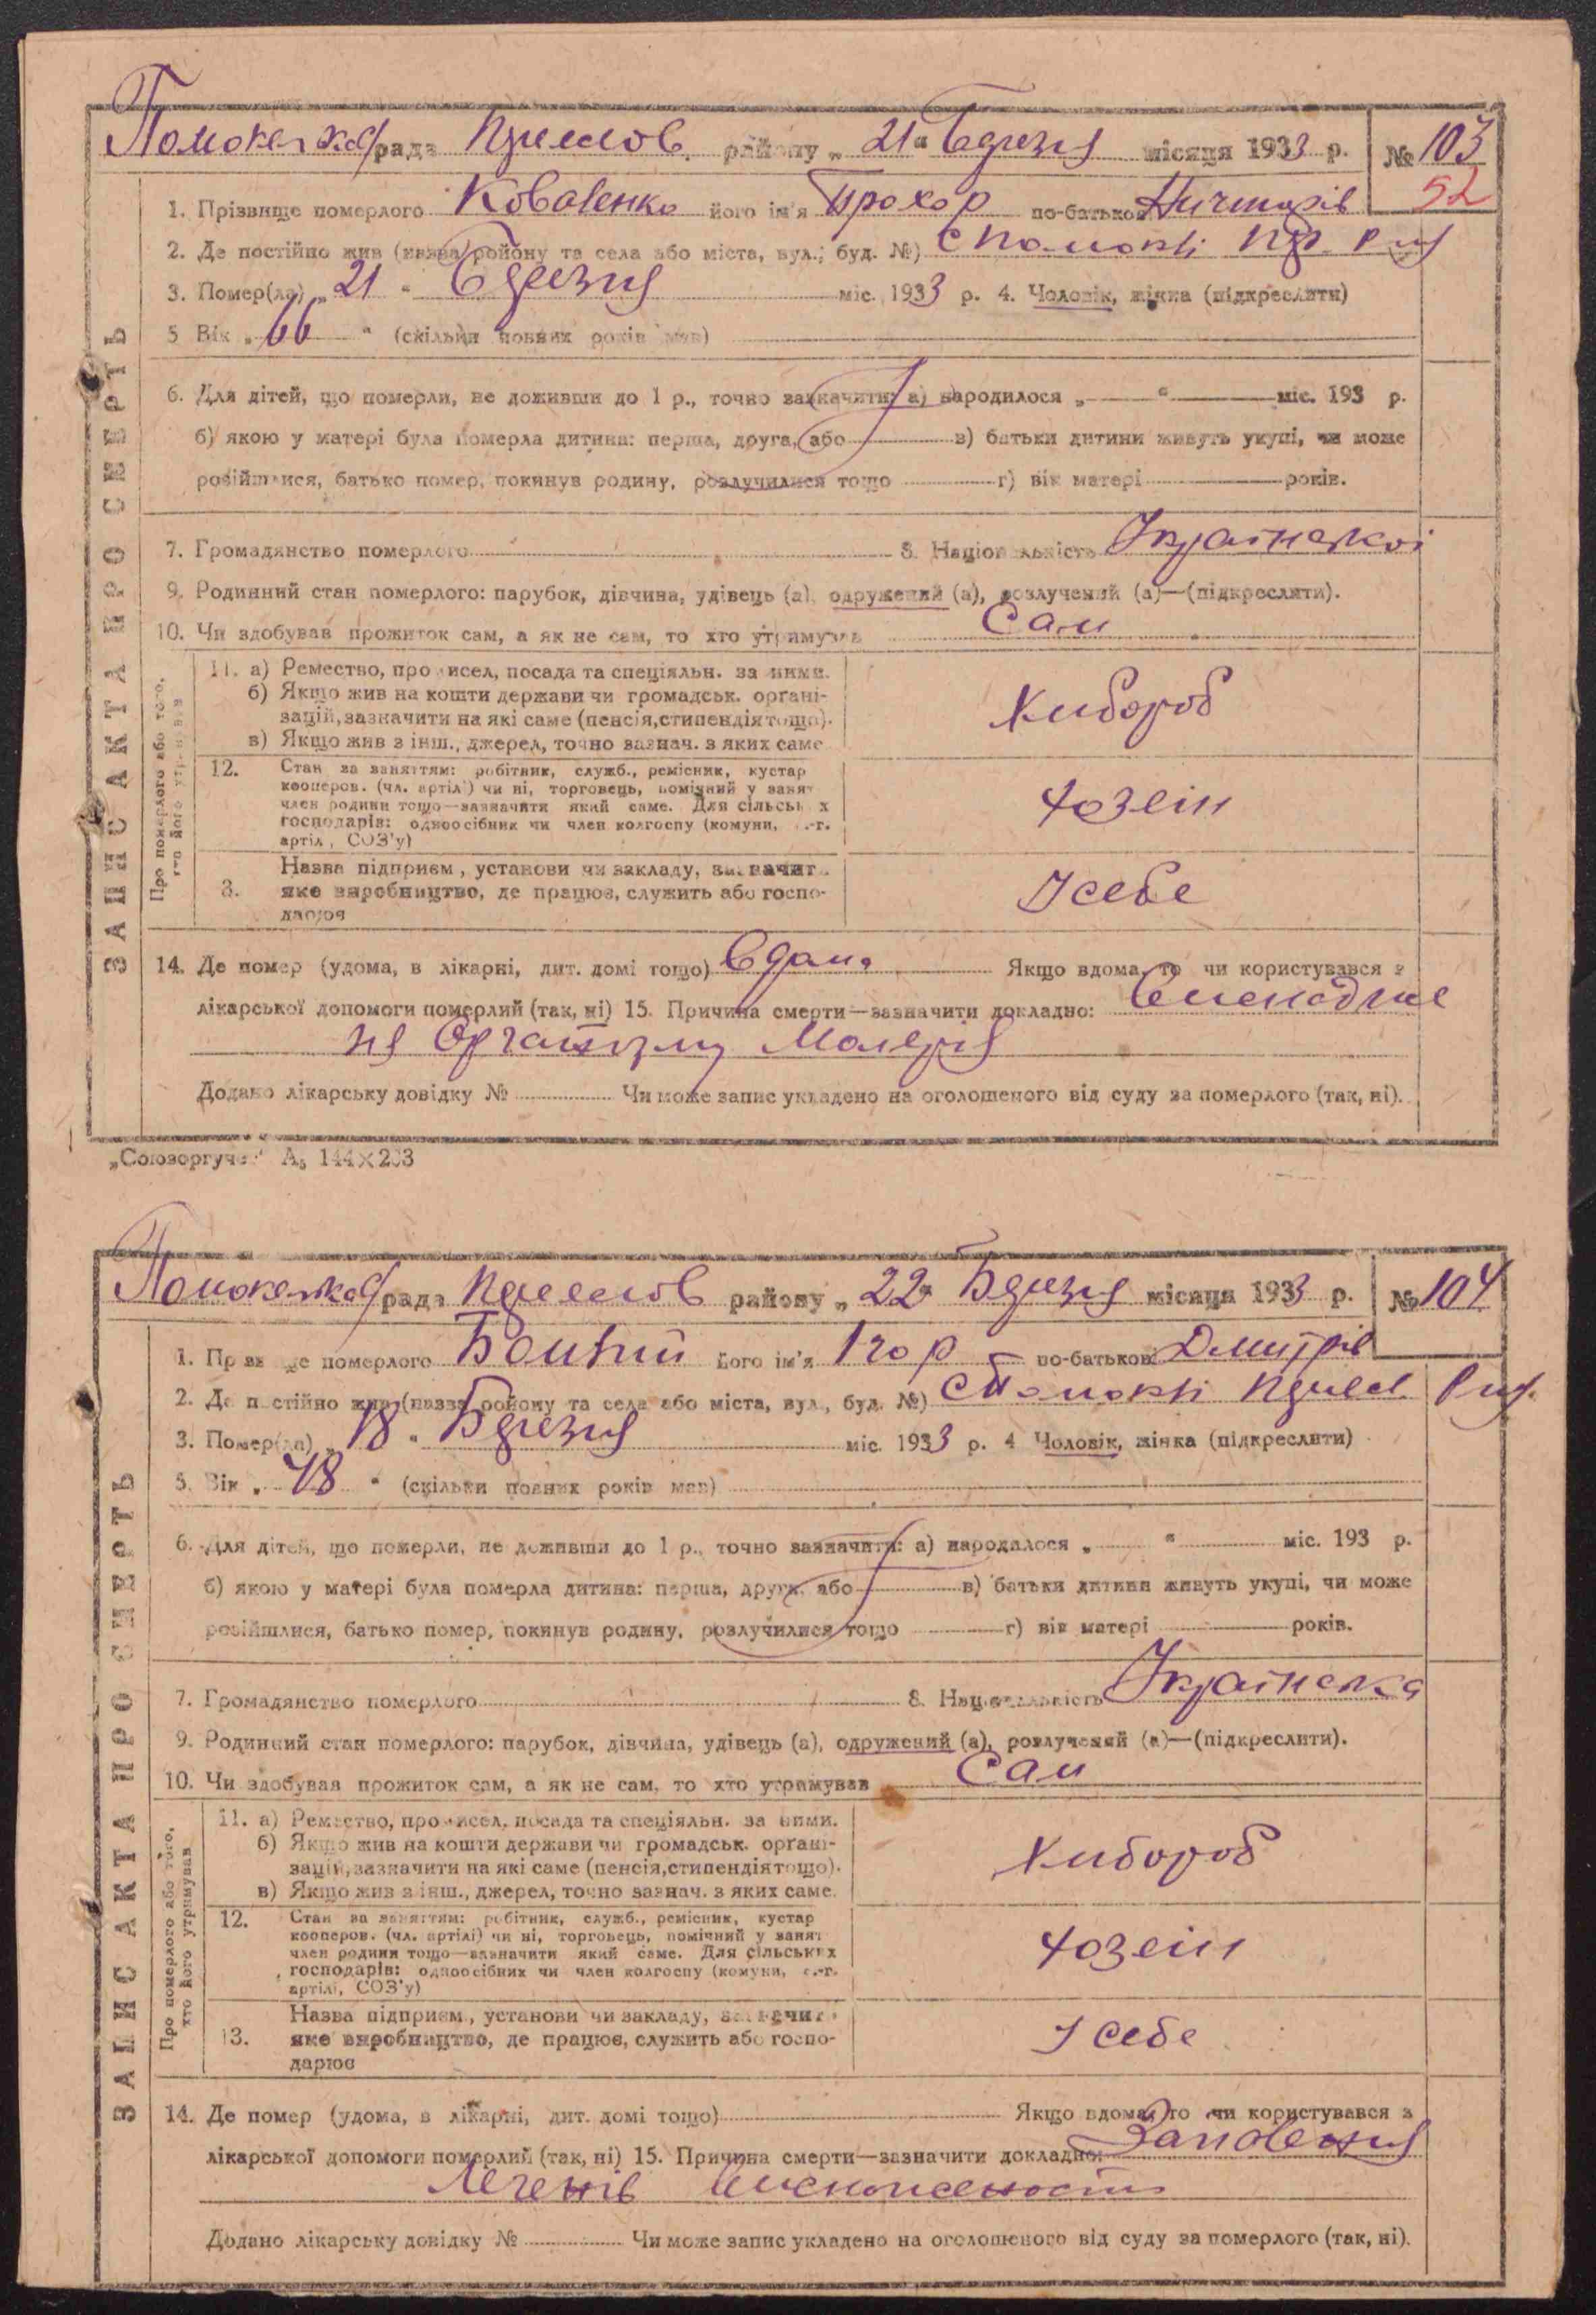 рада району „ 21 " Березня місяця 1933 р. № 103
52
1. Прізвище померлого Коваленко його ім'я Прохор по-батькові
2. Де постійно жив (назва району та села або міста, вул., буд. №)
3. Помер(ла) „ 21 " Березня міс. 1933 р. 4. Чоловік, жінка (підкреслити)
5 Вік „ 66 " (скільки повних років мав)
6. Для дітей, що померли, не доживши до 1 р., точно зазначити: а) народилося „ " міс. 193 р.
б) якою у матері була померла дитина: перша, друга, або в) батьки дитини живуть укупі, чи може
розійшлися, батько помер, покинув родину, розлучилися тощо г) вік матері років.
7. Громадянство померлого 8. Національність
9. Родинний стан померлого: парубок, дівчина, удівець (а), одружений (а), розлучений (а)—(підкреслити).
10. Чи здобував прожиток сам, а як не сам, то хто утримував Сам
ЗАПИС АКТА ПРО СМЕРТЬ
Про померлого або того,
хто його утримував
11. а) Ремество, промисел, посада та спеціяльн. за ними.
б) Якщо жив на кошти держави чи громадськ. органі-
зацій, зазначити на які саме (пенсія, стипендія тощо).
в) Якщо жив з інш., джерел, точно зазнач. з яких саме
Хибороб
12. Стан за заняттям: робітник, служб., ремісник, кустар
кооперов. (чл. артілі) чи ні, торговець, помічний у занят
член родини тощо—зазначити який саме. Для сільських
господарів: одноосібник чи член колгоспу (комуни, с.-г.
артіл, СОЗ'у)
Назва підприєм., установи чи закладу, зазначити
3. яке виробництво, де працює, служить або госпо-
дарює
У себе
14. Де помер (удома, в лікарні, дит. домі тощо) Вдома Якщо вдома, то чи користувався з
лікарської допомоги померлий (так, ні) 15. Причина смерти—зазначити докладно:
ня Организму Малерія
Додано лікарську довідку № Чи може запис укладено на оголошеного від суду за померлого (так, ні).
„Союзоргучет" А₅ 144×203
рада району „ 22 " Березня місяця 1933 р. № 104
1. Прізвище померлого його ім'я по-батькові Дмитрів
2. Де постійно жив (назва району та села або міста, вул., буд. №)
3. Помер(ла) „ 18 " Березня міс. 1933 р. 4 Чоловік, жінка (підкреслити)
5. Вік „ 48 " (скільки повних років мав)
6. Для дітей, що померли, не доживши до 1 р., точно зазначити: а) народилося „ " міс. 193 р.
б) якою у матері була померла дитина: перша, друга, або в) батьки дитини живуть укупі, чи може
розійшлися, батько помер, покинув родину, розлучилися тощо г) вік матері років.
7. Громадянство померлого 8. Національність Українська
9. Родинний стан померлого: парубок, дівчина, удівець (а), одружений (а), розлучений (а)—(підкреслити).
10. Чи здобував прожиток сам, а як не сам, то хто утримував Сам
ЗАПИС АКТА ПРО СМЕРТЬ
Про померлого або того,
хто його утримував
11. а) Ремество, промисел, посада та спеціяльн. за ними.
б) Якщо жив на кошти держави чи громадськ. органі-
зацій, зазначити на які саме (пенсія, стипендія тощо).
в) Якщо жив з інш., джерел, точно зазнач. з яких саме.
Хибороб
12. Стан за заняттям: робітник, служб., ремісник, кустар
кооперов. (чл. артілі) чи ні, торговець, помічний у занят
член родини тощо—зазначити який саме. Для сільських
господарів: одноосібних чи член колгоспу (комуни, с.-г.
артілі, СОЗ'у)
Назва підприєм., установи чи закладу, зазначити
13. яке виробництво, де працює, служить або госпо-
дарює
У себе
14. Де помер (удома, в лікарні, дит. домі тощо) Якщо вдома, то чи користувався з
лікарської допомоги померлий (так, ні) 15. Причина смерти—зазначити докладно:
Додано лікарську довідку № Чи може запис укладено на оголошеного від суду за померлого (так, ні).